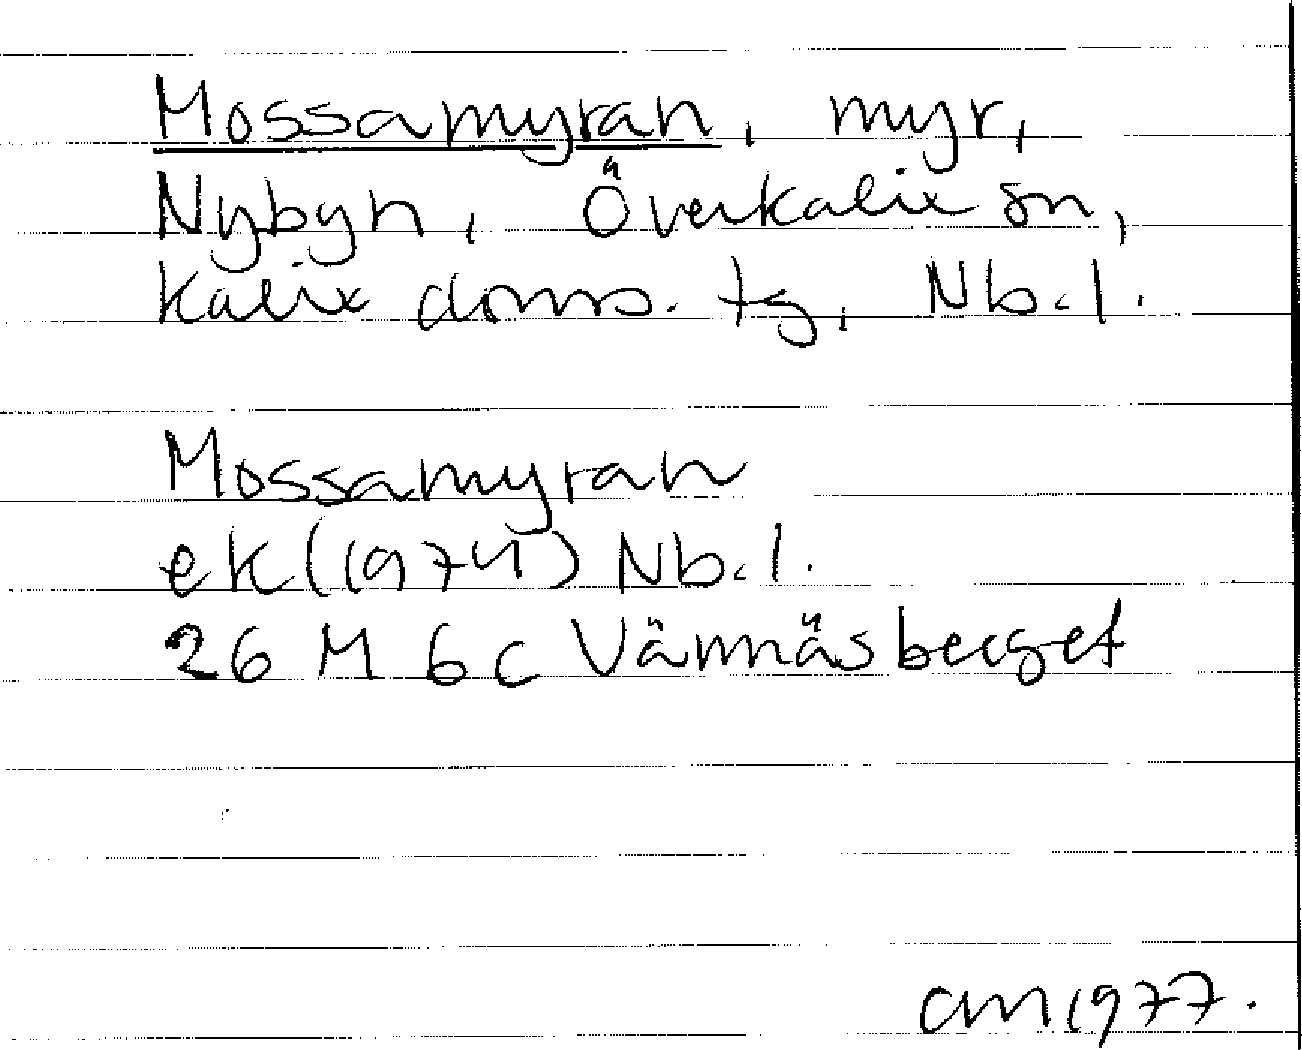 Mossamyran, myr,
Nybyn, Överkalix sn,
Kalix doms. tg, Nb. l.
Mossamyran
ek (1974) Nb. l.
26 M 6c Vännäsberget
CM 1977.